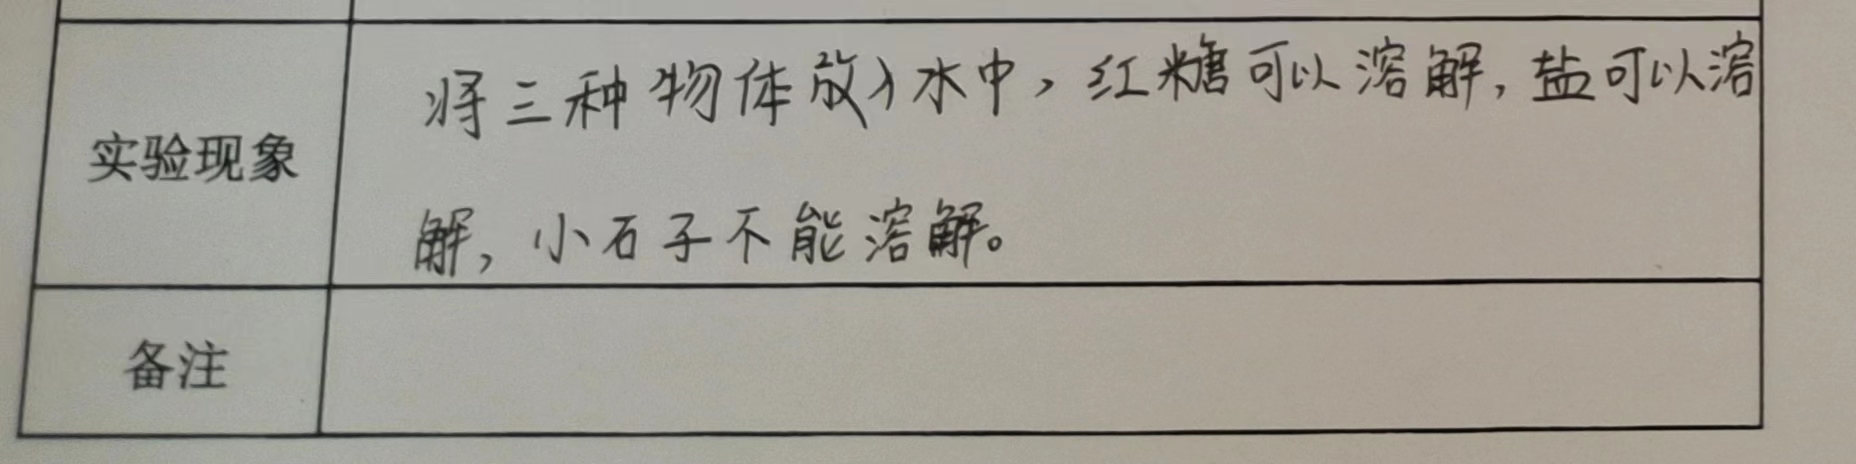 将三种物体放入水中，红糖可以溶解，盐可以溶
实验现象
解，小石子不能溶解。
备注